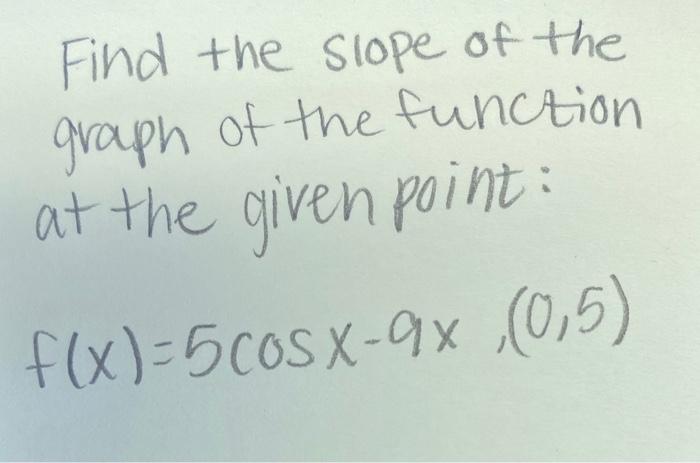 Find the slope of the
graph of the function
at the given point:
f(x)=5cosx-9x ,(0,5)